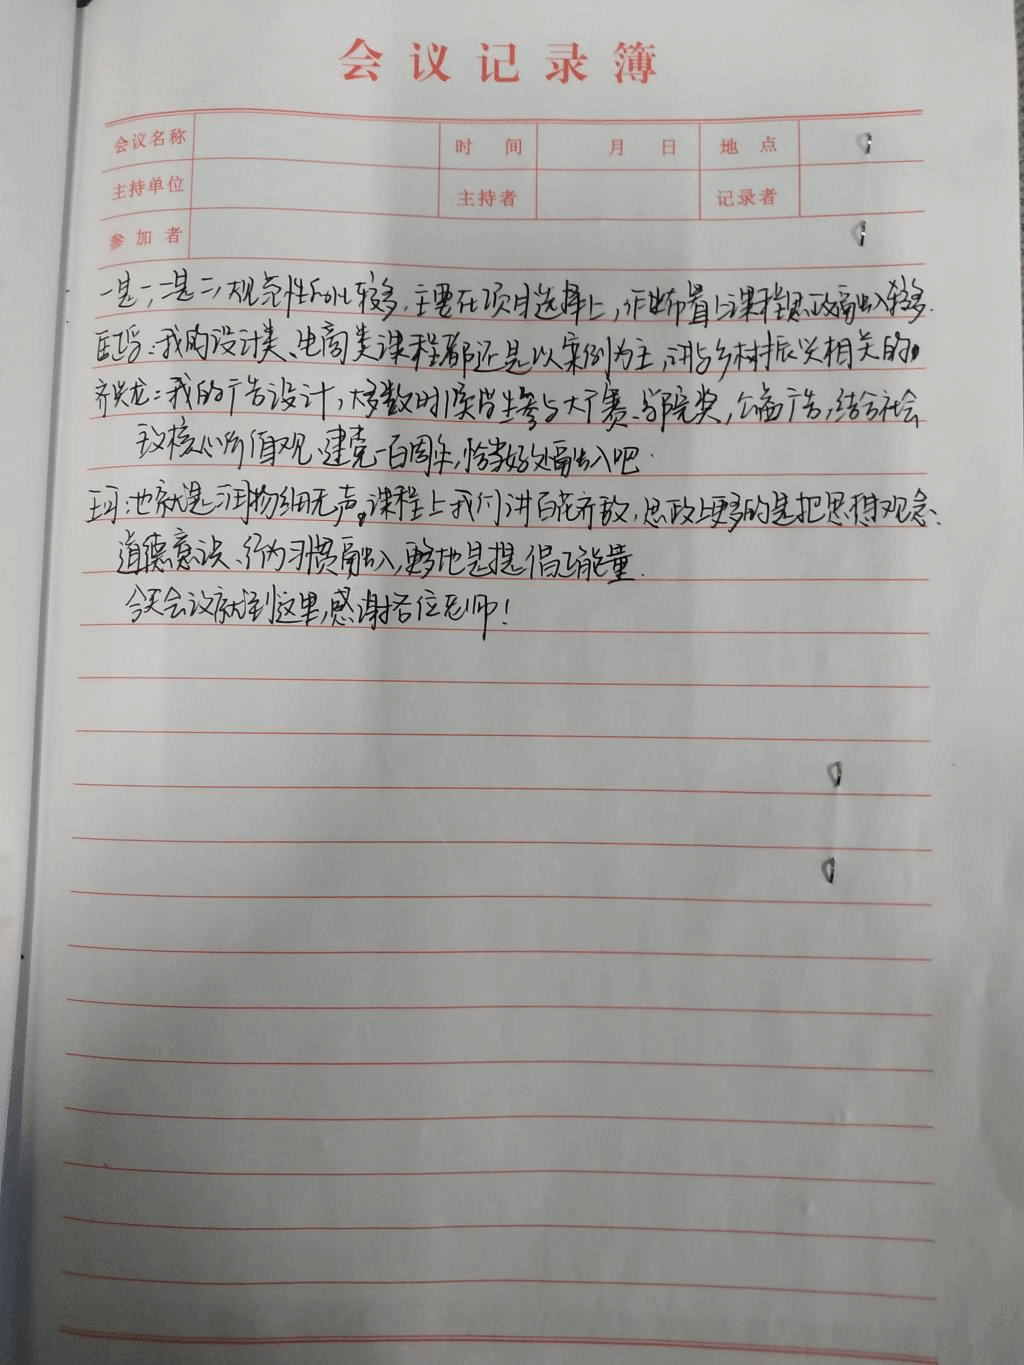 会议记录簿
会议名称 时间 月 日 地点
主持单位 主持者 记录者
参加者
一是一,二是二,规范性 较多,主要在项目选择上,作业布置上课程思政融入较多.
:我的设计类、电商类课程都还是以案例为主,讲与乡村振兴相关的。
齐兴龙:我的广告设计,大多数时候学生参与大广赛、学院奖,公益广告,结合社会
主义核心价值观、建党一百周年,恰当好处融入吧.
王珂:也就是润物细无声。课程上我们讲百花齐放,思政上更多的是把思想观念、
道德意识、行为习惯融入,更多地是提倡正能量.
今天会议就到这里,感谢各位老师!